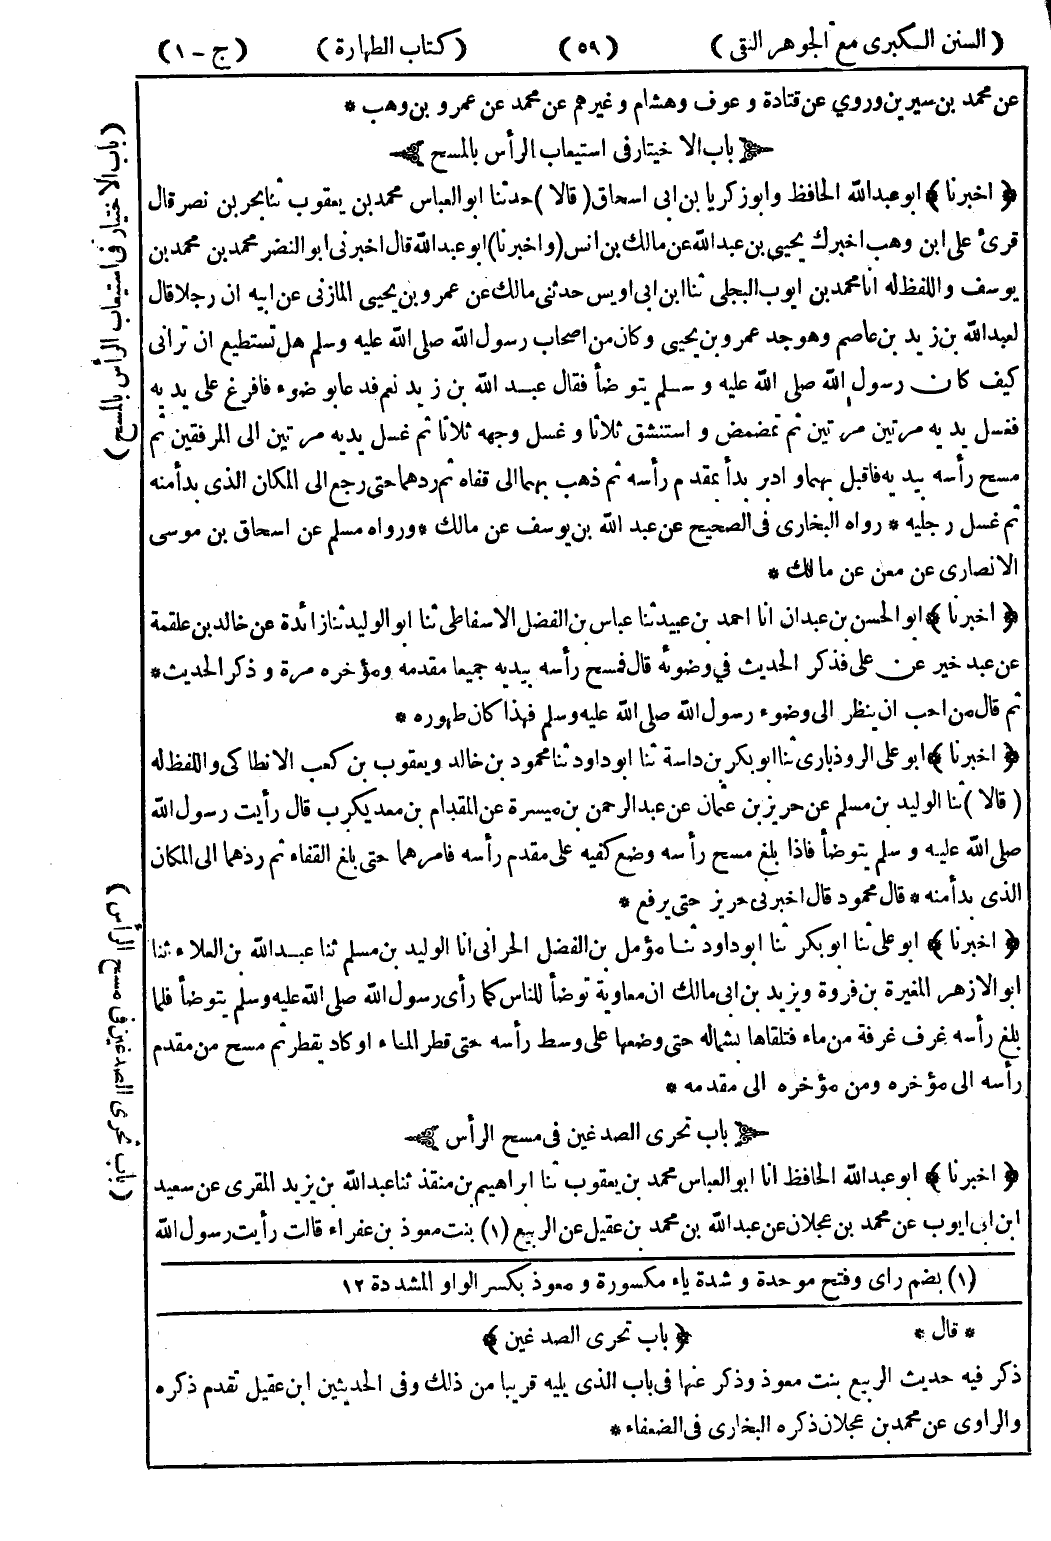 ( السنن الكبرى مع الجوهر النقى ) ( ٥٩ ) ( كتاب الطهارة ) ( ج - ١ )
عن محمد بن سيرين وروي عن قتادة وعوف وهشام وغيرهم عن محمد عن عمرو بن وهب *
باب الاختيار فى استيعاب الرأس بالمسح
﴿ اخبرنا ﴾ ابو عبدالله الحافظ وابو زكريا بن ابى اسحاق ( قالا ) حدثنا ابو العباس محمد بن يعقوب ثنا بحر بن نصر قال
قرئ على ابن وهب اخبرك يحيى بن عبدالله عن مالك بن انس ( واخبرنا ) ابو عبدالله قال اخبرنى ابو النضر محمد بن محمد بن
يوسف واللفظ له انا محمد بن ايوب البجلى ثنا ابن ابى اويس حدثنى مالك عن عمرو بن يحيى المازنى عن ابيه ان رجلا قال
لعبدالله بن زيد بن عاصم وهو جد عمرو بن يحيى وكان من اصحاب رسول الله صلى الله عليه وسلم هل تستطيع ان ترانى
كيف كان رسول الله صلى الله عليه وسلم يتوضأ فقال عبد الله بن زيد نعم فدعا بوضوء فافرغ على يديه
فغسل يديه مرتين مرتين ثم تمضمض و استنشق ثلاثا و غسل وجهه ثلاثا ثم غسل يديه مرتين الى المرفقين ثم
مسح رأسه بيديه فاقبل بهما و ادبر بدأ بمقدم رأسه ثم ذهب بهما الى قفاه ثم ردهما حتى رجع الى المكان الذى بدأ منه
ثم غسل رجليه * رواه البخارى فى الصحيح عن عبد الله بن يوسف عن مالك * ورواه مسلم عن اسحاق بن موسى
الانصارى عن معن عن مالك *
﴿ اخبرنا ﴾ ابو الحسن بن عبدان انا احمد بن عبيد ثنا عباس بن الفضل الاسفاطى ثنا ابو الوليد ثنا زائدة عن خالد بن علقمة
عن عبد خير عن على فذكر الحديث في وضوئه قال فمسح رأسه بيديه جميعا مقدمه ومؤخره مرة و ذكر الحديث *
ثم قال من احب ان ينظر الى وضوء رسول الله صلى الله عليه وسلم فهذا كان طهوره *
﴿ اخبرنا ﴾ ابو على الروذبارى ثنا ابو بكر بن داسة ثنا ابو داود ثنا محمود بن خالد ويعقوب بن كعب الانطاكى واللفظ له
( قالا ) ثنا الوليد بن مسلم عن حريز بن عثمان عن عبدالرحمن بن ميسرة عن المقدام بن معديكرب قال رأيت رسول الله
صلى الله عليه و سلم يتوضأ فاذا بلغ مسح رأسه وضع كفيه على مقدم رأسه فامرهما حتى بلغ القفاء ثم ردهما الى المكان
الذى بدأ منه * قال محمود قال اخبرنى حريز حتى يرفع *
﴿ اخبرنا ﴾ ابو على ثنا ابو بكر ثنا ابو داود ثنا مؤمل بن الفضل الحرانى انا الوليد بن مسلم ثنا عبدالله بن العلاء ثنا
ابو الازهر المغيرة بن فروة ويزيد بن ابى مالك ان معاوية توضأ للناس كما رأى رسول الله صلى الله عليه وسلم يتوضأ فلما
بلغ رأسه غرف غرفة من ماء فتلقاها بشماله حتى وضعها على وسط رأسه حتى قطر الماء او كاد يقطر ثم مسح من مقدم
رأسه الى مؤخره ومن مؤخره الى مقدمه *
باب تحرى الصدغين فى مسح الرأس
﴿ اخبرنا ﴾ ابو عبدالله الحافظ انا ابو العباس محمد بن يعقوب ثنا ابراهيم بن منقذ ثنا عبدالله بن يزيد المقرى عن سعيد
ابن ابى ايوب عن محمد بن عجلان عن عبدالله بن محمد بن عقيل عن الربيع (١) بنت معوذ بن عفراء قالت رأيت رسول الله
(١) بضم راى وفتح موحدة و شدة ياء مكسورة و معوذ بكسر الواو المشددة ١٢
* قال * ﴿ باب تحرى الصدغين ﴾
ذكر فيه حديث الربيع بنت معوذ وذكر عنها فى باب الذى يليه قريبا من ذلك وفى الحديثين ابن عقيل تقدم ذكره
والراوى عن محمد بن عجلان ذكره البخارى فى الضعفاء *
( باب الاختيار فى استيعاب الرأس بالمسح )
( باب تحرى الصدغين فى مسح الرأس )